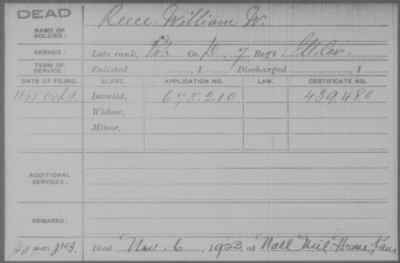 DEAD
NAME OF SOLDIER: Reece William W.
SERVICE: Late rank, Pvt. Co. D, 7 Reg't Ill. Cav.
TERM OF SERVICE: Enlisted , 1 Discharged , 1
DATE OF FILING. CLASS. APPLICATION NO. LAW. CERTIFICATE NO.
Invalid, 675.210 439.480
Widow,
Minor,
ADDITIONAL SERVICES:
REMARKS:
Died Nov. 6, 1923, at Natl Mil Home, Kans